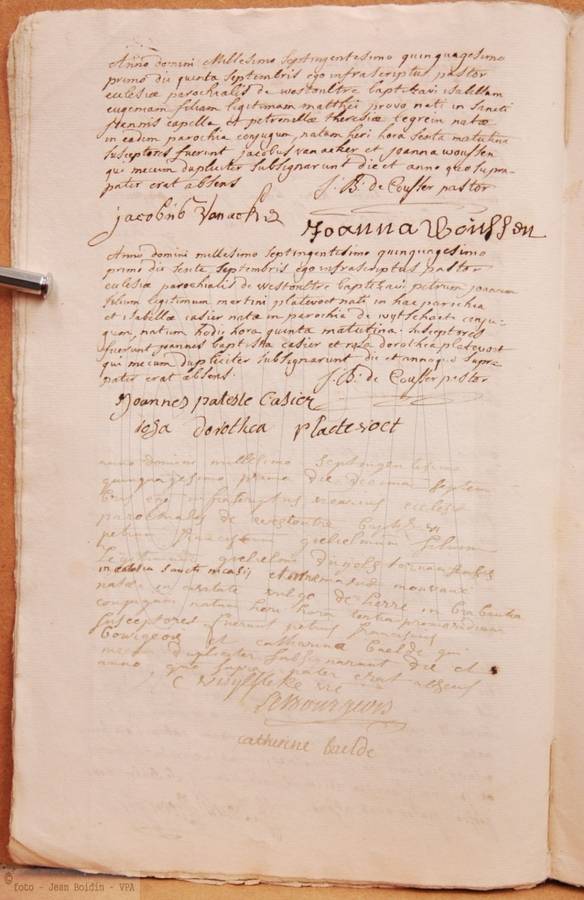 Anno domini Millesimo Septingentesimo quinquagesimo
primo die quinta Septembris ego infrascriptus pastor
ecclesiæ parochialis de westoultre baptisavi isabellam
eugeniam filiam legitimam matthei provo nati in Sancti
capella et petronellæ theresiæ natæ
in eadem parochia conjugum, natam heri hora sexta matutina
susceptores fuerunt jacobus vanacker et joanna woussen
qui mecum dupliciter subsignarunt die et anno quo supra
pater erat absens J. B. de Cousser pastor
jacobus Vanacker
Joanna Woussen
Anno domini millesimo Septingentesimo quinquagesimo
primo die sexta Septembris ego infrascriptus pastor
ecclesiæ parochialis de westoultre baptisavi petrum
filium legitimum martini platevoet nati in hac parochia
et isabellæ casier natæ in parochia de wytschaete conju-
gum, natum hodie hora quinta matutina. Susceptores
fuerunt joannes baptista casier et rosa dorothea platevoet
qui mecum dupliciter subsignarunt die et anno quo supra
pater erat absens. J. B. de Cousser pastor
Joannes Casier
rosa dorothea plactevoet
anno domini millesimo septingentesimo
quinquagesimo primo die decima septem
bris ego infrascriptus vicarius ecclesiæ
parochialis de westoutre
petrum gulielmum filium
legitimum
natæ in
conjugum natum heri hora
susceptores fuerunt petrus franciscus
bourgeois et catharina baelde qui
mecum dupliciter subsignarunt die et
anno quo supra pater erat absens
bourgeois
catherine baelde
© foto - Jean Boidin - VPA